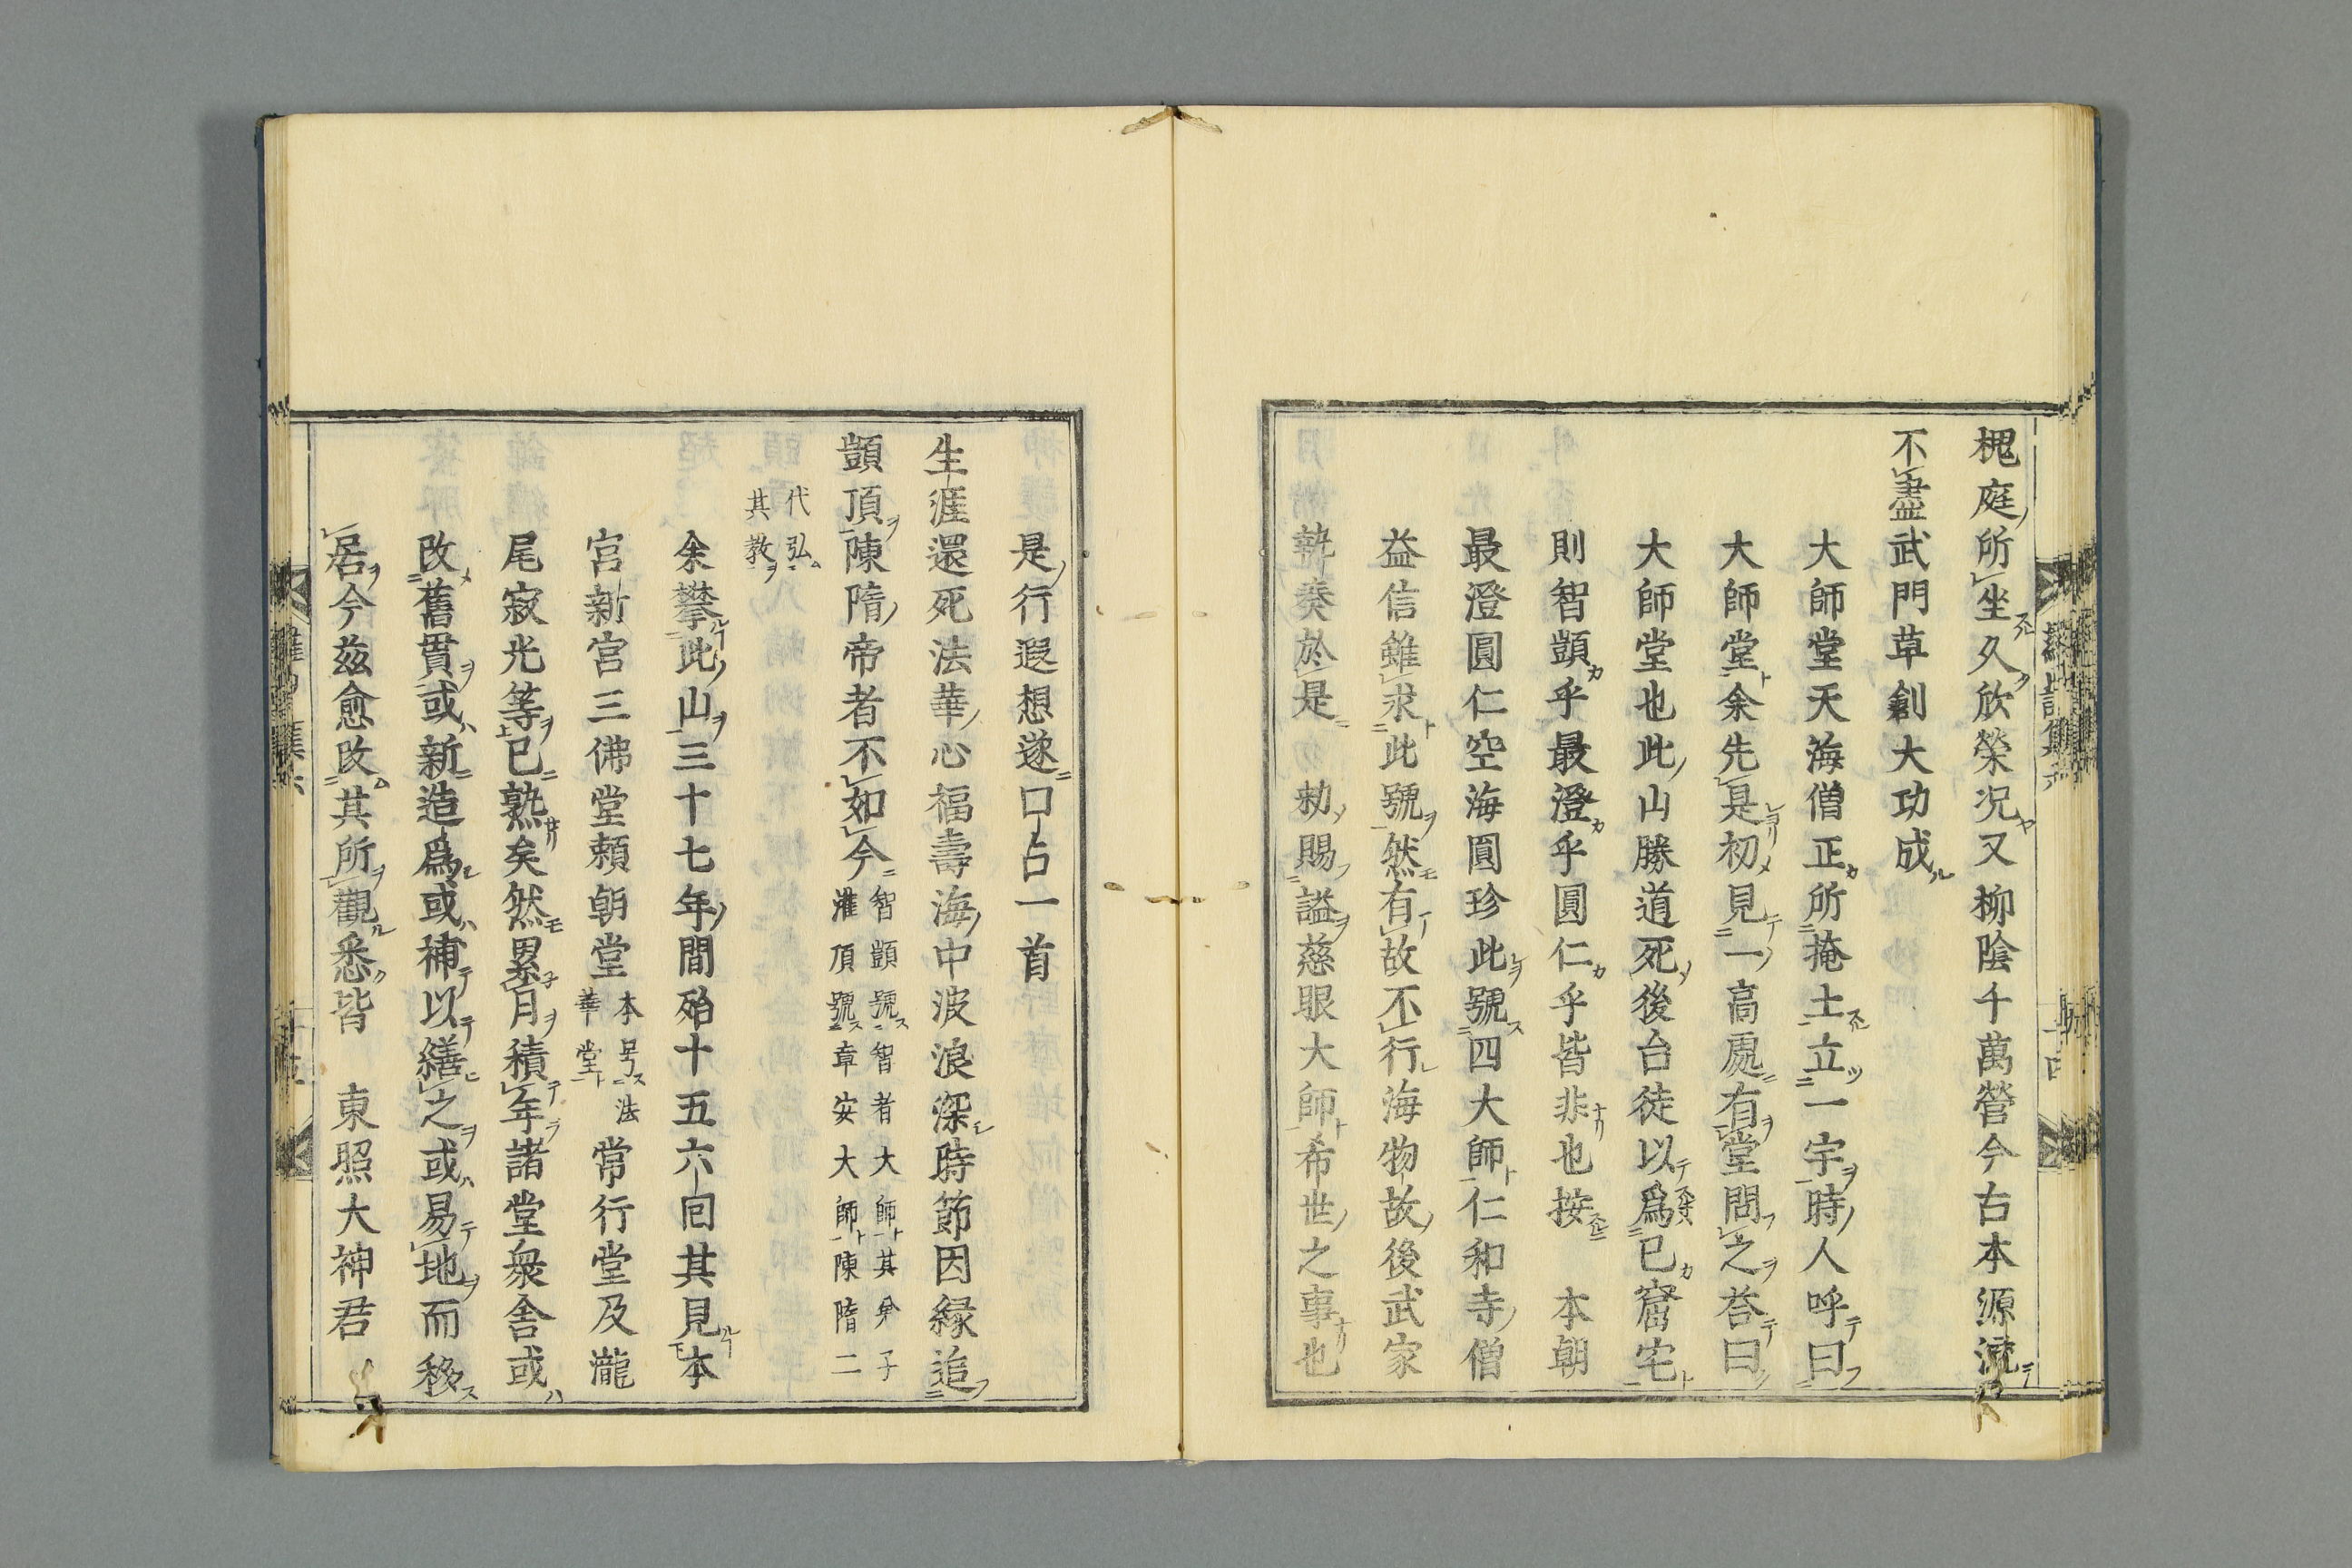 槐庭所坐久欣榮况又柳陰千萬營今古本源流
不盡武門草創大功成
大師堂天海僧正所掩土立一宇時人呼曰
大師堂余先是初見一高處有堂問之荅曰
大師堂也此山勝道死後台徒以爲已窟宅
則智顗乎最澄乎圓仁乎皆非也按　本朝
最澄圓仁空海圓珍此號四大師仁和寺僧
益信雖求此號然有故不行海物故後武家
執奏於是　勅賜謚慈眼大師希世之事也
是行遐想遂口占一首
生涯還死法華心福壽海中波浪深時節因縁追
顗頂陳隋帝者不如今智顗號智者大師其弟子灌頂號章安大師陳隋二
代弘其教
余攀此山三十七年間殆十五六回其見本
宮新宮三佛堂頼朝堂本号法華堂常行堂及瀧
尾寂光等已熟矣然累月積年諸堂衆舎或
改舊貫或新造爲或補以繕之或易地而移
居今兹愈改其所觀悉皆　東照大神君